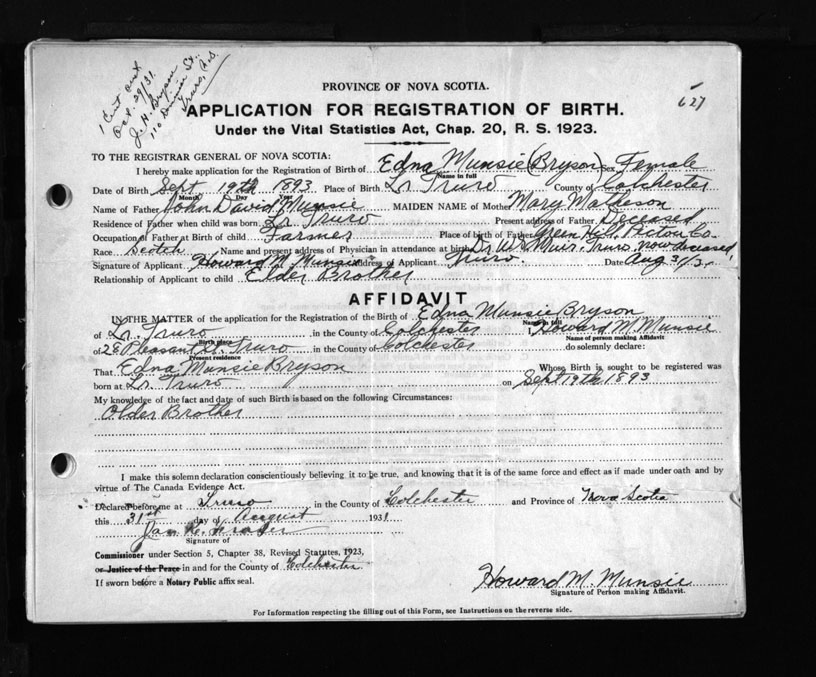 1 Cert. sent
Oct. 29/31.
J. H. Bryson
110 Dominion St.,
Truro, N.S.
627
PROVINCE OF NOVA SCOTIA.
APPLICATION FOR REGISTRATION OF BIRTH.
Under the Vital Statistics Act, Chap. 20, R. S. 1923.
TO THE REGISTRAR GENERAL OF NOVA SCOTIA:
I hereby make application for the Registration of Birth of Edna Munsie (Bryson) Sex Female
Name in full
Date of Birth Sept 19th 1893 Place of Birth Lr Truro County of Colchester
Month Day Year
Name of Father John David Munsie MAIDEN NAME of Mother Mary Matheson
Residence of Father when child was born Lr Truro Present address of Father Deceased
Occupation of Father at Birth of child Farmer Place of birth of Father Green Hill, Pictou Co.
Race Scotch Name and present address of Physician in attendance at birth Dr W. S. Muir. Truro now deceased
Signature of Applicant Howard M. Munsie Address of Applicant Truro. Date Aug 31/31
Relationship of Applicant to child Elder Brother
AFFIDAVIT
IN THE MATTER of the application for the Registration of the Birth of Edna Munsie Bryson
Name in full
of Lr. Truro in the County of Colchester I, Howard M. Munsie
Birth place Name of person making Affidavit
of 28 Pleasant St. Truro in the County of Colchester do solemnly declare:
Present residence
That Edna Munsie Bryson Whose Birth is sought to be registered was
born at Lr Truro on Sept 19th 1893
My knowledge of the fact and date of such Birth is based on the following Circumstances:
Older Brother
I make this solemn declaration conscientiously believing it to be true, and knowing that it is of the same force and effect as if made under oath and by
virtue of The Canada Evidence Act.
Declared before me at Truro in the County of Colchester and Province of Nova Scotia
this 31st day of August 1931
Signature of
Commissioner under Section 5, Chapter 38, Revised Statutes, 1923,
or Justice of the Peace in and for the County of Colchester
If sworn before a Notary Public affix seal.
Howard M. Munsie
Signature of Person making Affidavit.
For Information respecting the filling out of this Form, see Instructions on the reverse side.